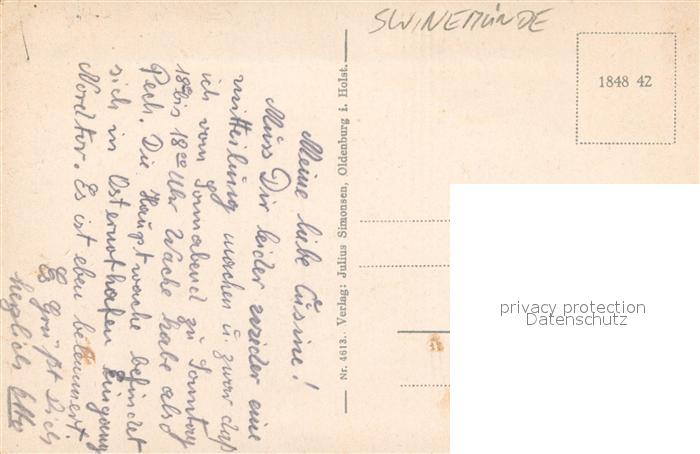 SWINEMÜNDE
1848 42
Meine liebe Cusine!
Muss Dir leider wieder eine
mitteilung machen u. zwar daß
ich vom Sonnabend zu Sonntag
18°° bis 18°° Uhr Wache habe also
Pech. Die Hauptwache befindet
sich in Osternothafen Eingang
Nordtor. Es ist eben belemmert.
Es Grüßt Dich
herzlich Otto
Nr. 4613. Verlag: Julius Simonsen, Oldenburg i. Holst.
privacy protection
Datenschutz